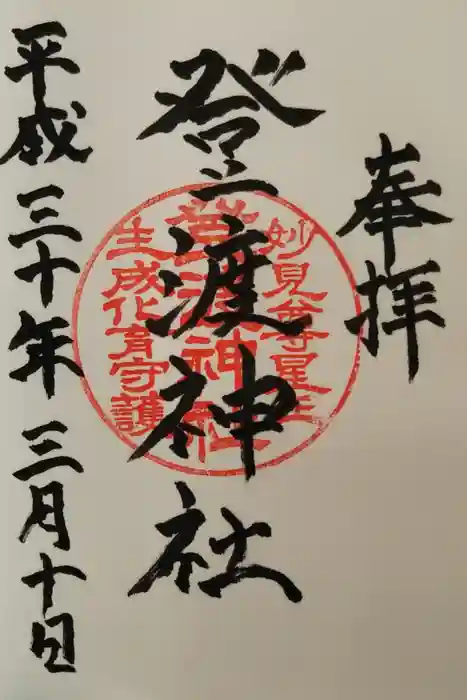 奉拝
登渡神社
妙見尊星
登渡神社
生成化育守護
平成三十年三月十日